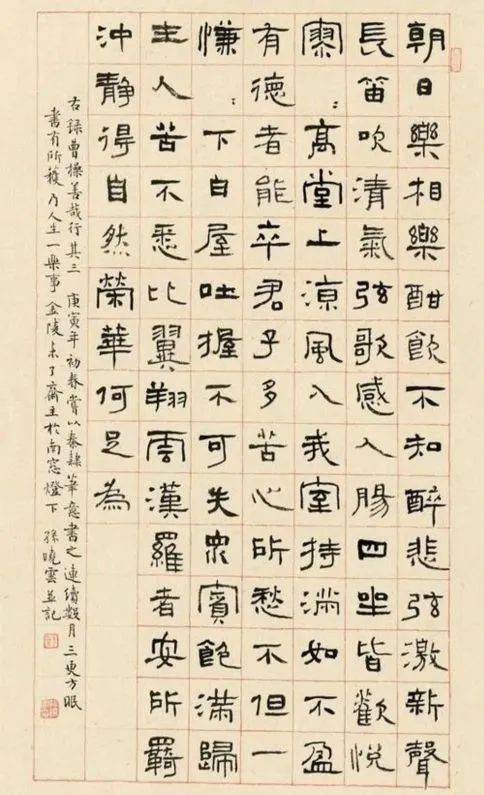 朝日樂相樂酣飲不知醉悲弦激新聲
長笛吹清氣弦歌感人腸四坐皆歡悅
寥：高堂上涼風入我室持滿如不盈
有德者能卒君子多苦心所愁不但一
慊：下白屋吐握不可失眾賓飽滿歸
主人苦不悉比翼翔雲漢羅者安所羇
沖靜得自然榮華何足為
右錄曹操善哉行其三 庚寅年初春嘗以秦隸筆意書之連續數月三更方眠
書有所獲乃人生一樂事金陵未了齋主於南窓燈下 孫曉雲並記